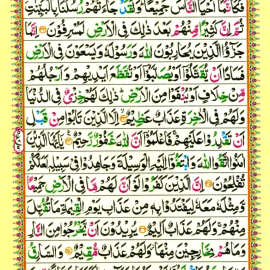 فَكَاَنَّمَاۤ اَحْيَا النَّاسَ جَمِيْعًا ؕ وَلَقَدْ جَآءَتْهُمْ رُسُلُنَا بِالْبَيِّنٰتِ
ثُمَّ اِنَّ كَثِيْرًا مِّنْهُمْ بَعْدَ ذٰلِكَ فِى الْاَرْضِ لَمُسْرِفُوْنَ ۞ اِنَّمَا
جَزٰٓؤُا الَّذِيْنَ يُحَارِبُوْنَ اللّٰهَ وَرَسُوْلَهٗ وَيَسْعَوْنَ فِى الْاَرْضِ
فَسَادًا اَنْ يُّقَتَّلُوْۤا اَوْ يُصَلَّبُوْۤا اَوْ تُقَطَّعَ اَيْدِيْهِمْ وَاَرْجُلُهُمْ
مِّنْ خِلَافٍ اَوْ يُنْفَوْا مِنَ الْاَرْضِ ؕ ذٰلِكَ لَهُمْ خِزْىٌ فِى الدُّنْيَا
وَلَهُمْ فِى الْاٰخِرَةِ عَذَابٌ عَظِيْمٌ ۞ اِلَّا الَّذِيْنَ تَابُوْا مِنْ قَبْلِ
اَنْ تَقْدِرُوْا عَلَيْهِمْ ۚ فَاعْلَمُوْۤا اَنَّ اللّٰهَ غَفُوْرٌ رَّحِيْمٌ ۞ يٰۤاَيُّهَا الَّذِيْنَ
اٰمَنُوا اتَّقُوا اللّٰهَ وَابْتَغُوْۤا اِلَيْهِ الْوَسِيْلَةَ وَجَاهِدُوْا فِىْ سَبِيْلِهٖ لَعَلَّكُمْ
تُفْلِحُوْنَ ۞ اِنَّ الَّذِيْنَ كَفَرُوْا لَوْ اَنَّ لَهُمْ مَّا فِى الْاَرْضِ جَمِيْعًا
وَّمِثْلَهٗ مَعَهٗ لِيَفْتَدُوْا بِهٖ مِنْ عَذَابِ يَوْمِ الْقِيٰمَةِ مَا تُقُبِّلَ
مِنْهُمْ ۚ وَلَهُمْ عَذَابٌ اَلِيْمٌ ۞ يُرِيْدُوْنَ اَنْ يَّخْرُجُوْا مِنَ النَّارِ
وَمَا هُمْ بِخٰرِجِيْنَ مِنْهَا ؗ وَلَهُمْ عَذَابٌ مُّقِيْمٌ ۞ وَالسَّارِقُ